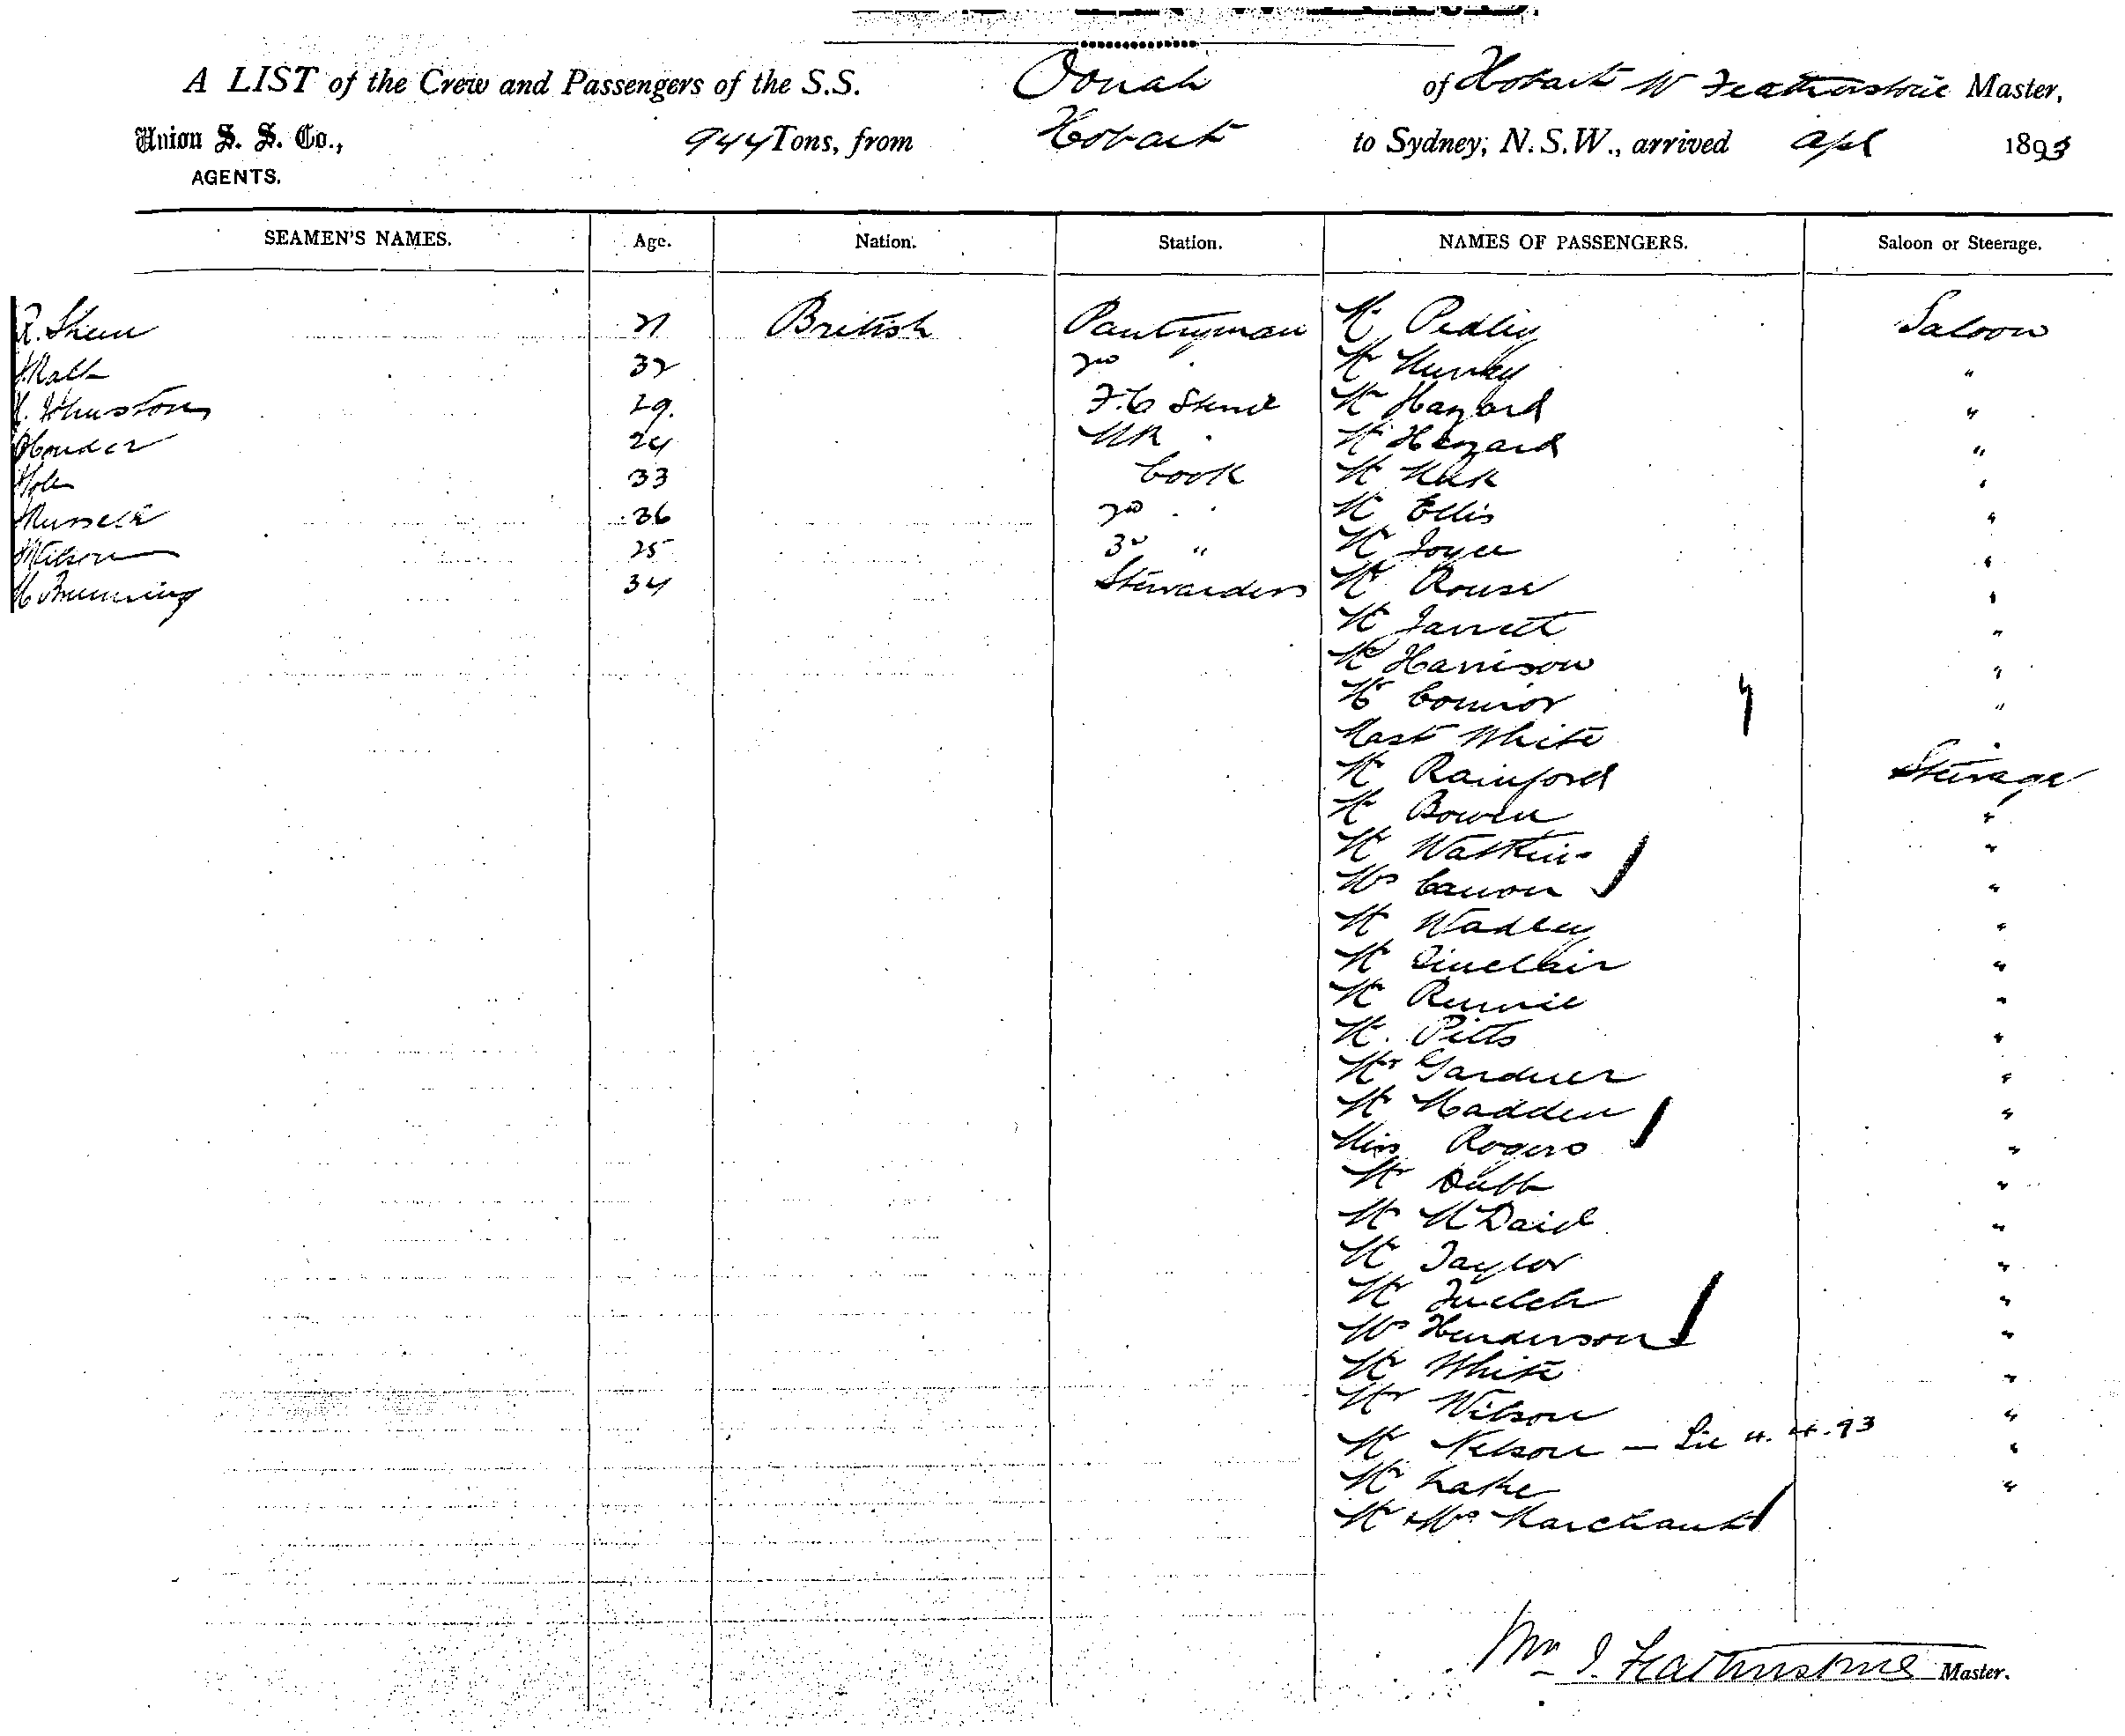 A LIST of the Crew and Passengers of the S.S. Oonah of Hobart W Featherstone Master,
Union S. S. Co., 944 Tons, from Hobart to Sydney, N.S.W., arrived Apl 1893
AGENTS.
SEAMEN'S NAMES. Age. Nation. Station. NAMES OF PASSENGERS. Saloon or Steerage.
British Pantryman Mr Pedley Saloon
32 2nd Mr "
Johnston 29. F.C. Mr Hazard "
24 Mr Hazard "
33 Cook Mr "
Russell 36 2nd Mr Ellis "
Wilson 25 3rd " Mr Joyce "
34 Stewardess Mr Rouse "
Mr Jarrett "
Mr Harrison "
Mr Connor "
Mast White "
Mr Rainford Steerage
Mr Bowen "
Mr Watkins "
Mrs Cannon "
Mr Wadley "
Mr Sinclair "
Mr Rennie "
Mr. Pitts "
Mr Gardner "
Mr Madden "
Miss Rogers "
Mr "
Mr McDaid "
Mr Taylor "
Mr "
Mrs Henderson "
Mr White "
Mr Wilson "
Mr Nelson — 4. 4. 93 "
Mr Lake "
Mr & Mrs Marchant
Wm J. Featherstone Master.